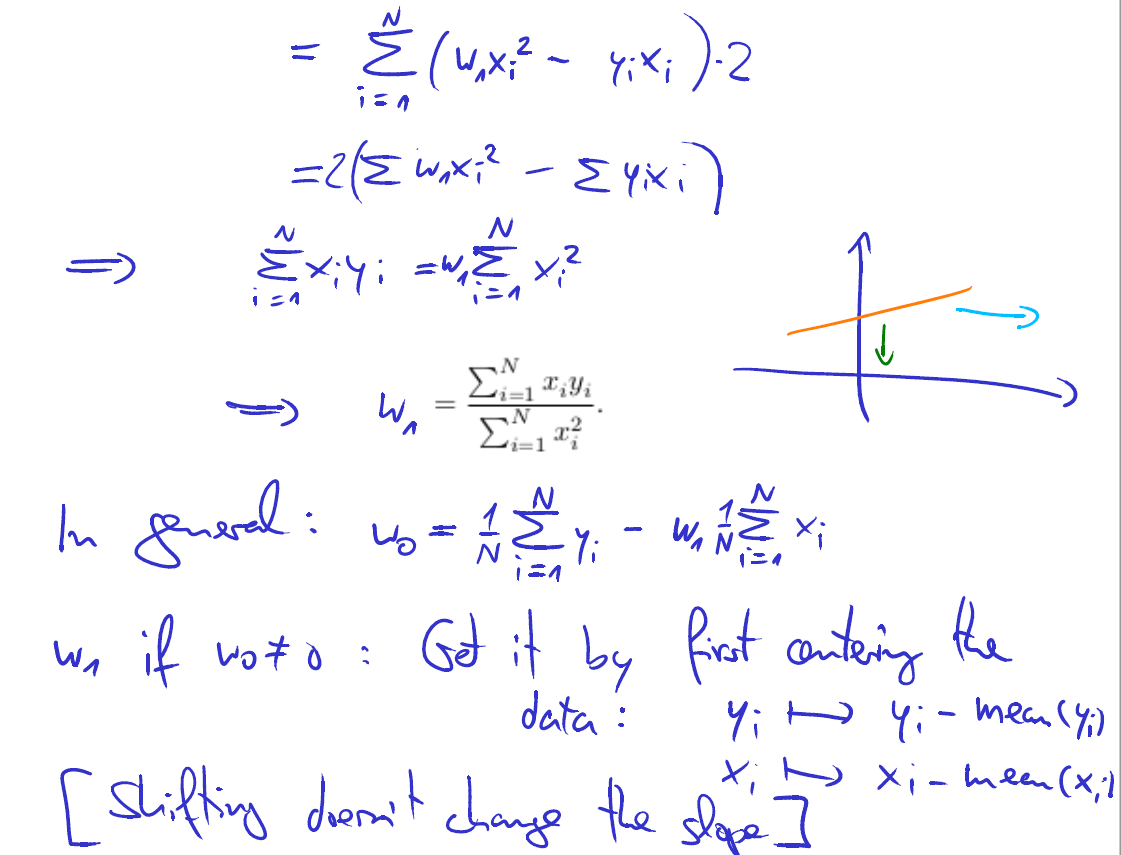 = \sum_{i=1}^{N} (w_1 x_i^2 - y_i x_i) \cdot 2
= 2(\sum w_1 x_i^2 - \sum y_i x_i)
\Longrightarrow \sum_{i=1}^{N} x_i y_i = w_1 \sum_{i=1}^{N} x_i^2
\Longrightarrow w_1 = \frac{\sum_{i=1}^{N} x_i y_i}{\sum_{i=1}^{N} x_i^2}.
In general: w_0 = \frac{1}{N} \sum_{i=1}^{N} y_i - w_1 \frac{1}{N} \sum_{i=1}^{N} x_i
w_1 if w_0 ≠ 0 : Get it by first centering the
data: y_i ⟼ y_i - mean(y_i)
x_i ⟼ x_i - mean(x_i)
[Shifting doesn't change the slope]